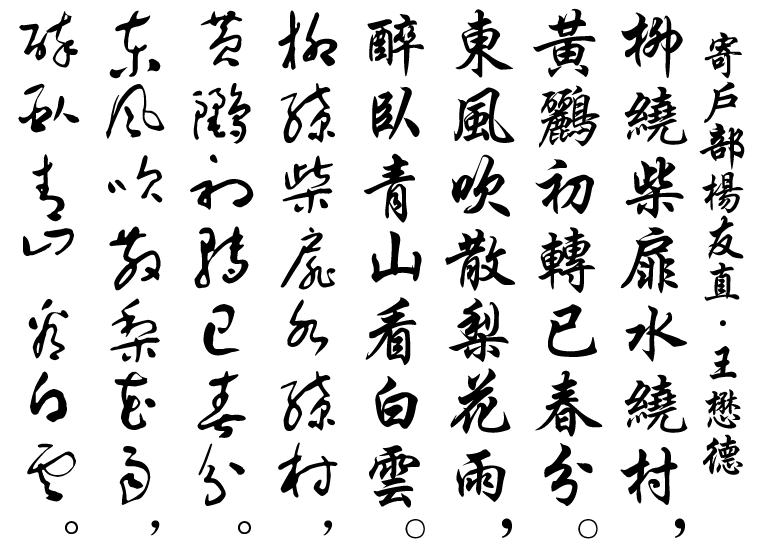 寄戶部楊友直·王懋德
柳繞柴扉水繞村，
黃鸝初轉已春分。
東風吹散梨花雨，
醉臥青山看白雲。
柳繞柴扉水繞村，
黃鸝初轉已春分。
東風吹散梨花雨，
醉臥青山看白雲。